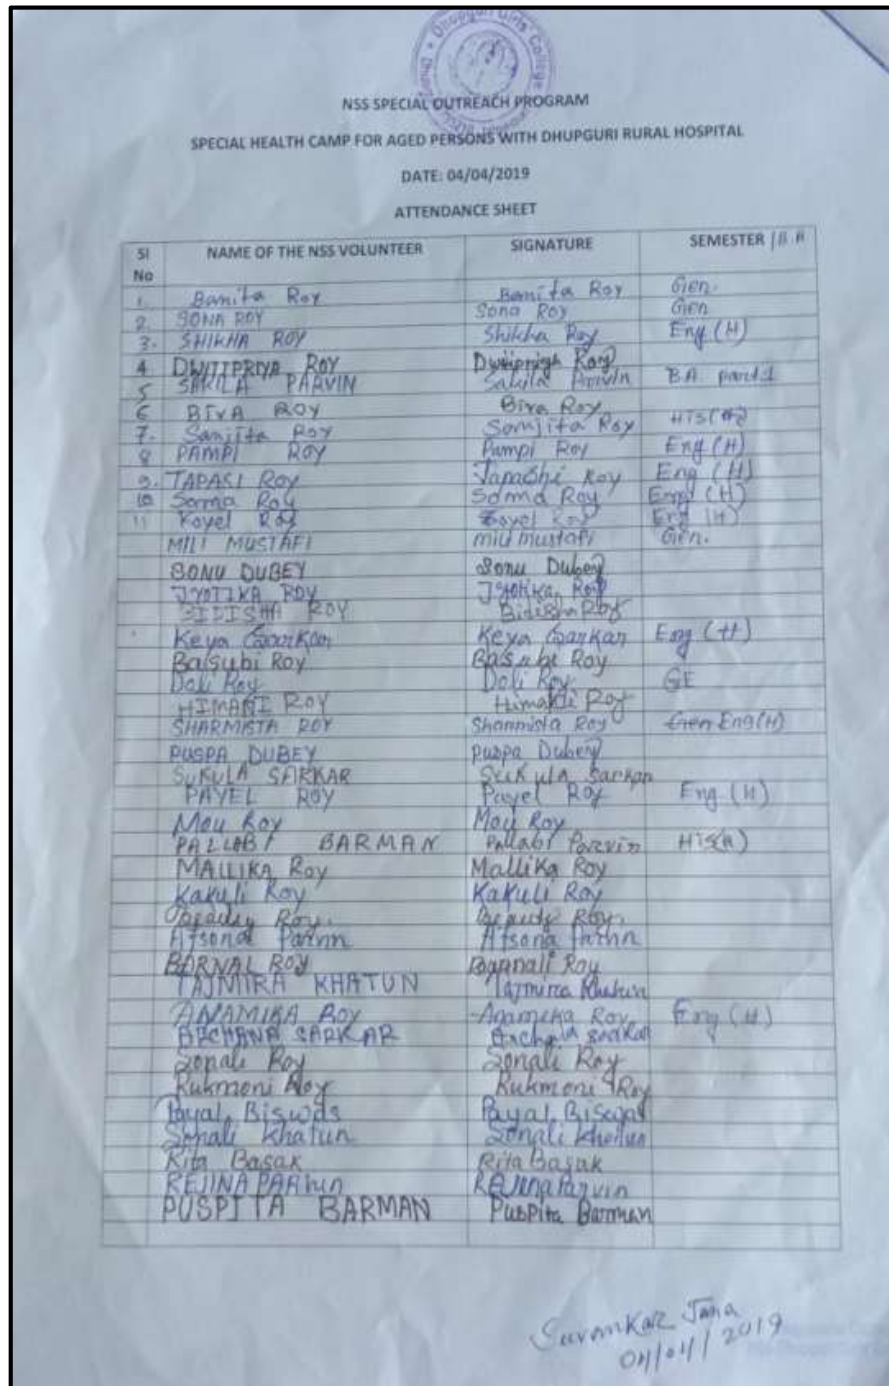 Dhupguri Girls' College
NSS SPECIAL OUTREACH PROGRAM
SPECIAL HEALTH CAMP FOR AGED PERSONS WITH DHUPGURI RURAL HOSPITAL
DATE: 04/04/2019
ATTENDANCE SHEET
Sl No NAME OF THE NSS VOLUNTEER SIGNATURE SEMESTER
1. Banita Roy Banita Roy Gen.
2. SONA ROY Sona Roy Gen
3. SHIKHA ROY Shikha Roy Eng (H)
4 DWITIPRIYA ROY Dwitipriya Roy
5 SAKILA PARVIN Sakila Parvin B.A part1
6 BIVA ROY Biva Roy
7. Sanjita Roy Sanjita Roy HIS(H)
8 PAMPI ROY Pampi Roy Eng (H)
9. TAPASI Roy Tapashi Roy Eng (H)
10 Soma Roy Soma Roy Eng (H)
11 Koyel Roy Koyel Roy Eng (H)
MILI MUSTAFI mili mustafi Gen.
SONU DUBEY Sonu Dubey
JYOTIKA ROY Jyotika Roy
BIDISHA ROY Bidisha Roy
Keya Sarkar Keya Sarkar Eng (H)
Basubi Roy Basubi Roy
Doli Roy Doli Roy GE
HIMANI ROY Roy
SHARMISTA ROY Sharmista Roy Gen Eng(H)
PUSPA DUBEY Puspa Dubey
SUKULA SARKAR Sukula Sarkar
PAYEL ROY Payel Roy Eng (H)
Mou Roy Mou Roy
PALLABI BARMAN Pallabi Parvin HIS(H)
MALLIKA Roy Mallika Roy
Kakuli Roy Kakuli Roy
Beauty Roy. Beauty Roy.
Afsona Parvin Afsona Parvin
BARNAL ROY Barnali Roy
TAJMIRA KHATUN Tajmira Khatun
ANAMIKA ROY Anamika Roy Eng (H)
ARCHANA SARKAR Archana Sarkar
Sonali Roy Sonali Roy
Rukmoni Roy Rukmoni Roy
Payal Biswas Payal Biswas
Sonali Khatun Sonali Khatun
Rita Basak Rita Basak
REJINA Rejina Parvin
PUSPITA BARMAN Puspita Barman
Jana
04/04/2019